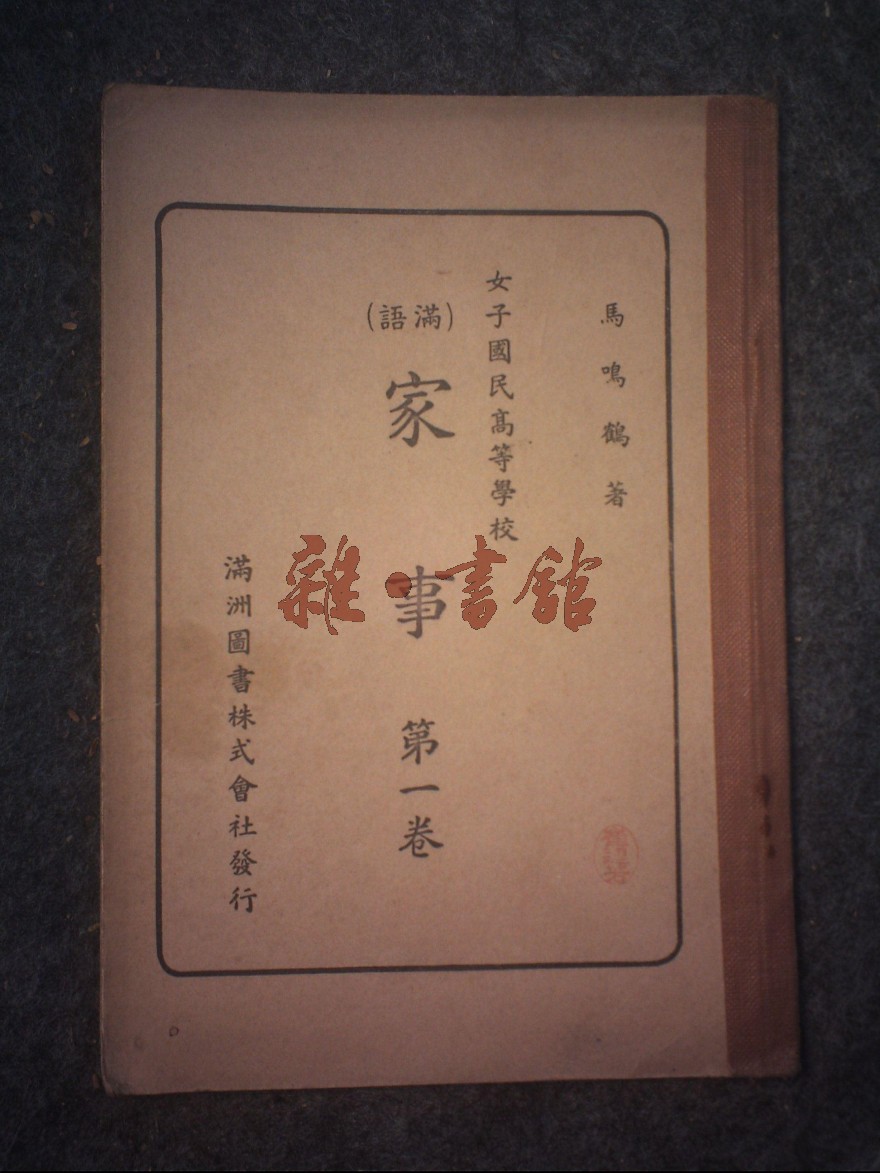 馬鳴鶴著
女子國民高等學校
(滿語)
家事 第一卷
滿洲圖書株式會社發行
雜·書館